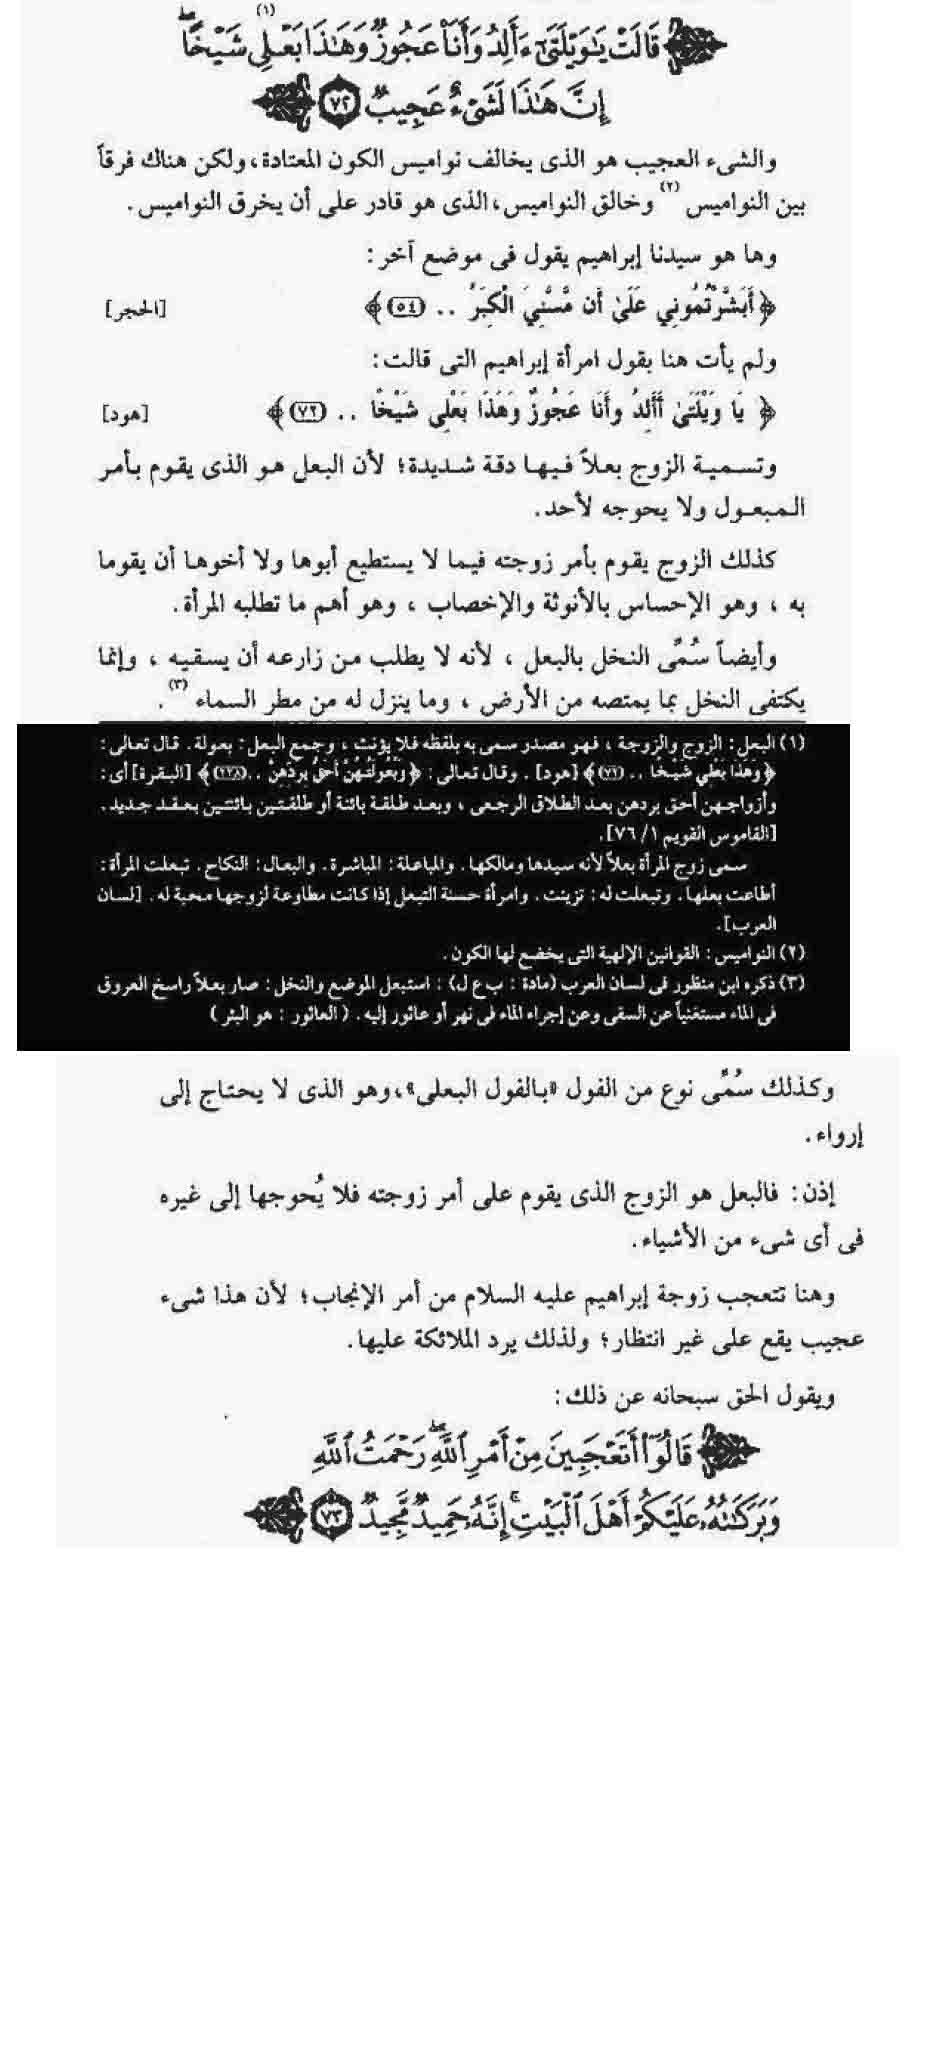 قَالَتْ يَٰوَيْلَتَىٰٓ ءَأَلِدُ وَأَنَا۠ عَجُوزٌ وَهَٰذَا بَعْلِى (١) شَيْخًا ۖ
إِنَّ هَٰذَا لَشَىْءٌ عَجِيبٌ ٧٢
والشىء العجيب هو الذى يخالف نواميس الكون المعتادة، ولكن هناك فرقاً
بين النواميس (٢) وخالق النواميس، الذى هو قادر على أن يخرق النواميس.
وها هو سيدنا إبراهيم يقول فى موضع آخر:
﴿أَبَشَّرْتُمُونِي عَلَىٰ أَن مَّسَّنِيَ الْكِبَرُ .. (٥٤)﴾ [الحجر]
ولم يأت هنا بقول امرأة إبراهيم التى قالت:
﴿يَا وَيْلَتَىٰ أَأَلِدُ وَأَنَا عَجُوزٌ وَهَذَا بَعْلِي شَيْخًا .. (٧٢)﴾ [هود]
وتسمية الزوج بعلاً فيها دقة شديدة؛ لأن البعل هو الذى يقوم بأمر
المبعول ولا يحوجه لأحد.
كذلك الزوج يقوم بأمر زوجته فيما لا يستطيع أبوها ولا أخوها أن يقوما
به ، وهو الإحساس بالأنوثة والإخصاب ، وهو أهم ما تطلبه المرأة.
وأيضاً سُمِّى النخل بالبعل ، لأنه لا يطلب من زارعه أن يسقيه ، وإنما
يكتفى النخل بما يمتصه من الأرض ، وما ينزل له من مطر السماء (٣) .
(١) البعل: الزوج والزوجة ، فهو مصدر سمى به بلفظه فلا يؤنث ، وجمع البعل: بعولة. قال تعالى:
﴿وَهَذَا بَعْلِي شَيْخًا .. (٧٢)﴾ [هود] . وقال تعالى: ﴿وَبُعُولَتُهُنَّ أَحَقُّ بِرَدِّهِنَّ ..(٢٢٨)﴾ [البقرة] أى:
وأزواجهن أحق بردهن بعد الطلاق الرجعى ، وبعد طلقة بائنة أو طلقتين بائنتين بعقد جديد.
[القاموس القويم ١/ ٧٦].
سمى زوج المرأة بعلاً لأنه سيدها ومالكها. والمباعلة: المباشرة. والبعال: النكاح. تبعلت المرأة:
أطاعت بعلها. وتبعلت له: تزينت. وامرأة حسنة التبعل إذا كانت مطاوعة لزوجها محبة له. [لسان
العرب].
(٢) النواميس: القوانين الإلهية التى يخضع لها الكون.
(٣) ذكره ابن منظور فى لسان العرب (مادة : ب ع ل) : استبعل الموضع والنخل: صار بعلاً راسخ العروق
فى الماء مستغنياً عن السقى وعن إجراء الماء فى نهر أو عاثور إليه. (العاثور : هو البئر)
وكذلك سُمِّى نوع من الفول «بالفول البعلى»، وهو الذى لا يحتاج إلى
إرواء.
إذن: فالبعل هو الزوج الذى يقوم على أمر زوجته فلا يُحوجها إلى غيره
فى أى شىء من الأشياء.
وهنا تتعجب زوجة إبراهيم عليه السلام من أمر الإنجاب؛ لأن هذا شىء
عجيب يقع على غير انتظار؛ ولذلك يرد الملائكة عليها.
ويقول الحق سبحانه عن ذلك:
قَالُوٓا۟ أَتَعْجَبِينَ مِنْ أَمْرِ ٱللَّهِ ۖ رَحْمَتُ ٱللَّهِ
وَبَرَكَٰتُهُۥ عَلَيْكُمْ أَهْلَ ٱلْبَيْتِ ۚ إِنَّهُۥ حَمِيدٌ مَّجِيدٌ ٧٣